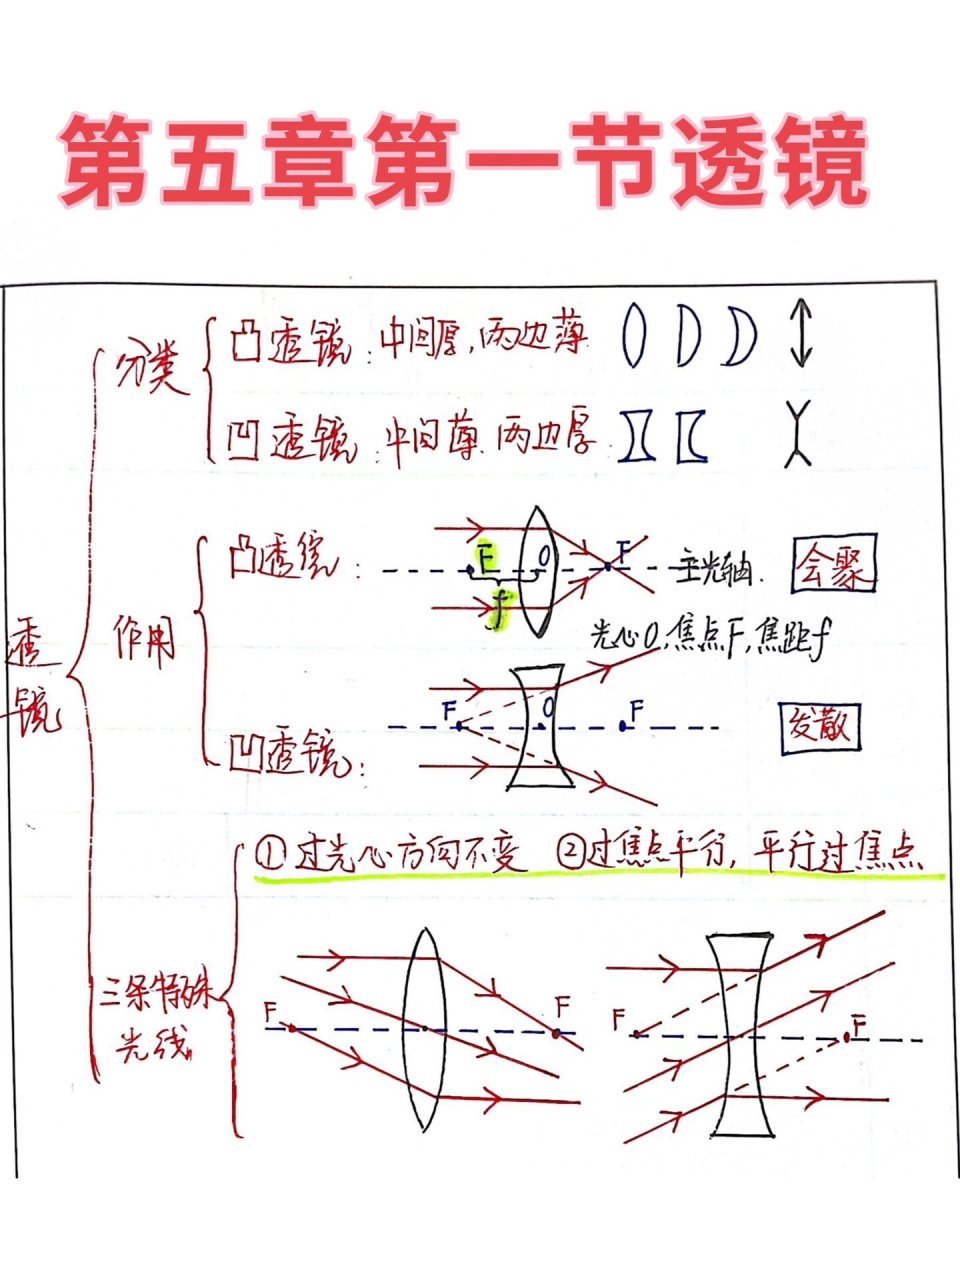 第五章第一节透镜
透镜
分类
凸透镜:中间厚,两边薄
凹透镜:中间薄.两边厚
作用
凸透镜:
F
O
F
f
主光轴.
会聚
光心O,焦点F,焦距f
凹透镜:
F
O
F
发散
三条特殊光线
①过光心方向不变 ②过焦点平行,平行过焦点
F
F
F
F